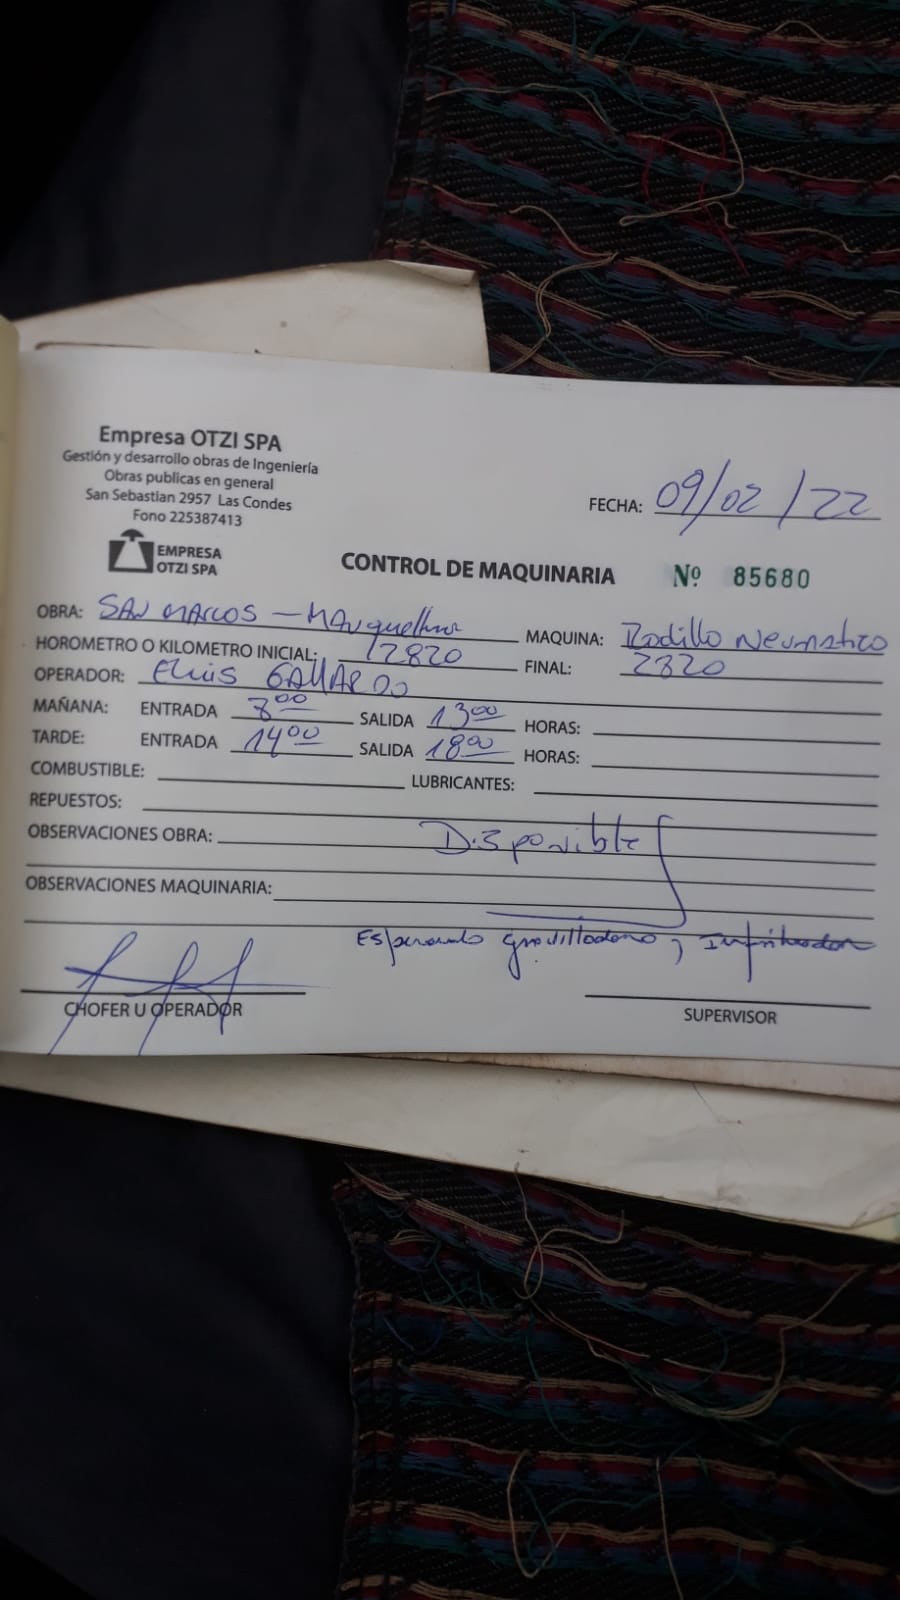 Empresa OTZI SPA
Gestión y desarrollo obras de Ingeniería
Obras publicas en general
San Sebastian 2957 Las Condes
Fono 225387413
EMPRESA
OTZI SPA
FECHA: 09/02/22
CONTROL DE MAQUINARIA Nº 85680
OBRA: SAN MARCOS - MAUQUE MAQUINA: Rodillo Neumatico
HOROMETRO O KILOMETRO INICIAL: 12820 FINAL: 2820
OPERADOR: Eluis GALLARDO
MAÑANA: ENTRADA 8:00 SALIDA 13:00 HORAS:
TARDE: ENTRADA 14:00 SALIDA 18:00 HORAS:
COMBUSTIBLE: LUBRICANTES:
REPUESTOS:
OBSERVACIONES OBRA: Disponible
OBSERVACIONES MAQUINARIA:
Esperando gravilladora, Imprimador
CHOFER U OPERADOR SUPERVISOR